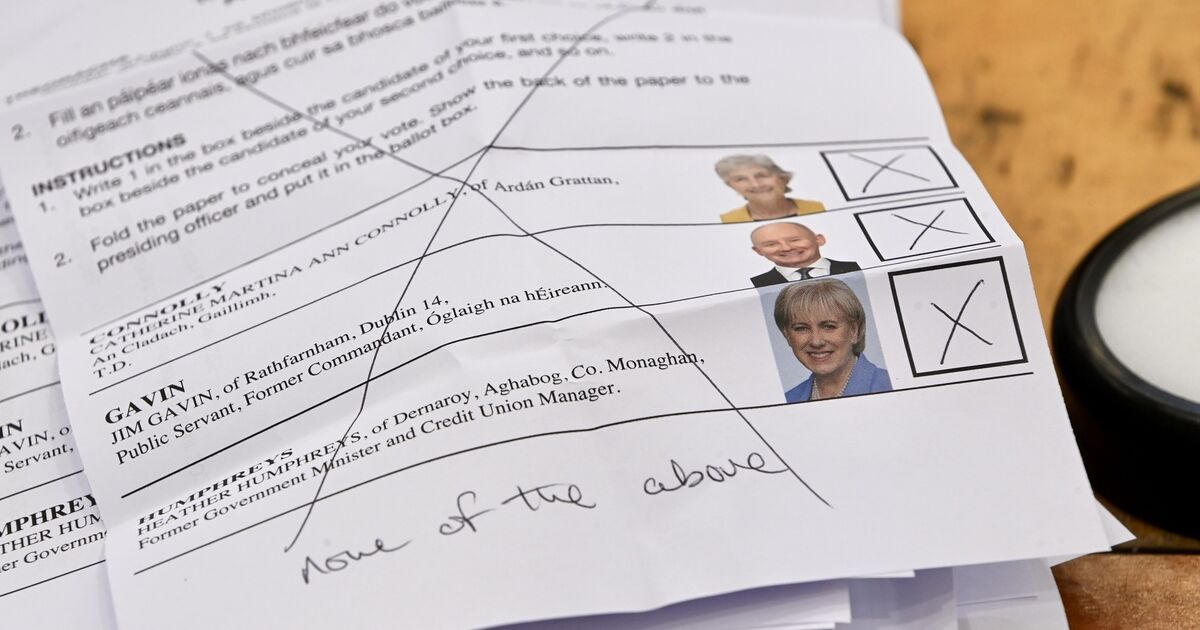 2. Fill an páipéar ionas nach bhfeicfear do
oifigeach ceannais, agus cuir sa bhosca
INSTRUCTIONS
1. Write 1 in the box beside the candidate of your first choice, write 2 in the
box beside the candidate of your second choice, and so on.
2. Fold the paper to conceal your vote. Show the back of the paper to the
presiding officer and put it in the ballot box.
CONNOLLY
CATHERINE MARTINA ANN CONNOLLY, of Ardán Grattan,
An Cladach, Gaillimh.
T.D.
GAVIN
JIM GAVIN, of Rathfarnham, Dublin 14,
Public Servant, Former Commandant, Óglaigh na hÉireann.
HUMPHREYS
HEATHER HUMPHREYS, of Dernaroy, Aghabog, Co. Monaghan,
Former Government Minister and Credit Union Manager.
none of the above